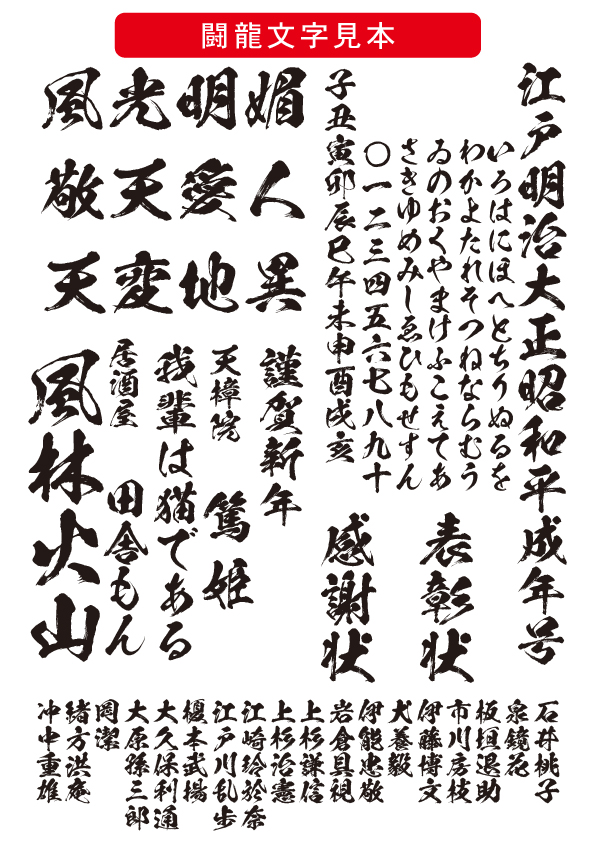 闘龍文字見本
江戸明治大正昭和平成年号
いろはにほへとちりぬるを
わかよたれそつねならむう
ゐのおくやまけふこえてあ
さきゆめみしゑひもせすん
〇一二三四五六七八九十
子丑寅卯辰巳午未申酉戌亥
表彰状
感謝状
風光明媚
敬天愛人
天変地異
謹賀新年
天樟院 篤姫
我輩は猫である
居酒屋 田舎もん
風林火山
石井桃子
泉鏡花
板垣退助
市川房枝
伊藤博文
犬養毅
伊能忠敬
岩倉具視
上杉謙信
上杉治憲
江崎玲於奈
江戸川乱歩
榎本武揚
大久保利通
大原孫三郎
岡潔
緒方洪庵
沖中重雄